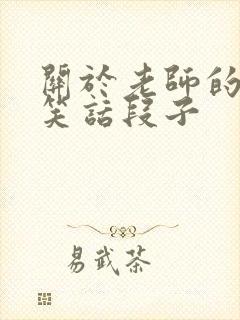 關於老師的
笑話段子
易武茶